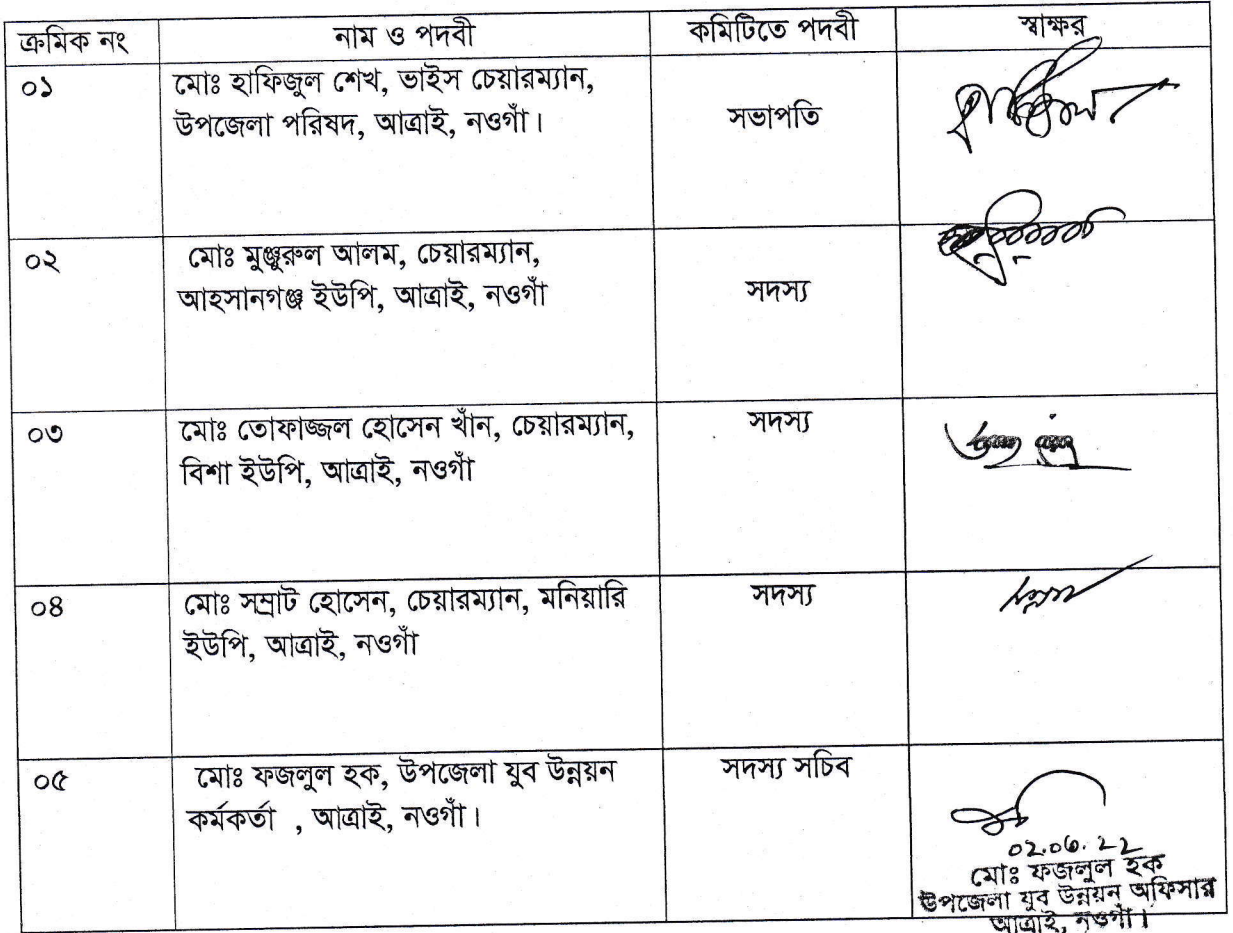 ক্রমিক নং নাম ও পদবী কমিটিতে পদবী স্বাক্ষর
০১ মোঃ হাফিজুল শেখ, ভাইস চেয়ারম্যান,
উপজেলা পরিষদ, আত্রাই, নওগাঁ। সভাপতি
০২ মোঃ মুঞ্জুরুল আলম, চেয়ারম্যান,
আহসানগঞ্জ ইউপি, আত্রাই, নওগাঁ সদস্য
০৩ মোঃ তোফাজ্জল হোসেন খাঁন, চেয়ারম্যান, সদস্য
বিশা ইউপি, আত্রাই, নওগাঁ
০৪ মোঃ সম্রাট হোসেন, চেয়ারম্যান, মনিয়ারি সদস্য
ইউপি, আত্রাই, নওগাঁ
০৫ মোঃ ফজলুল হক, উপজেলা যুব উন্নয়ন সদস্য সচিব
কর্মকর্তা , আত্রাই, নওগাঁ।
মোঃ ফজলুল হক
উপজেলা যুব উন্নয়ন অফিসার
আত্রাই, নওগাঁ।